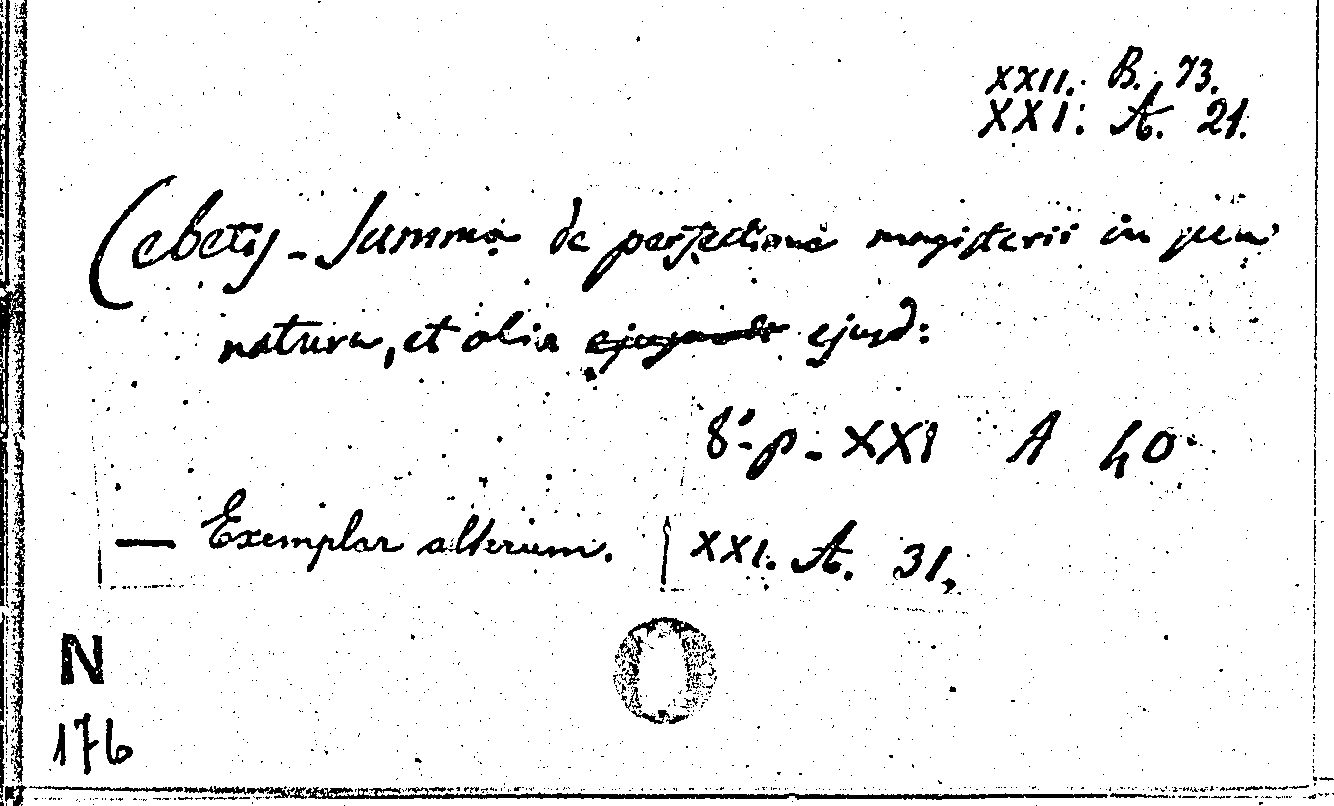 XXII. B. 73.
XXI. A. 21.
Cebetis - Summa de perfectione magisterii in sua
natura, et alia ejusd:
8.° p - XXI A 40
— Exemplar alterum. | XXI. A. 31.
N
176